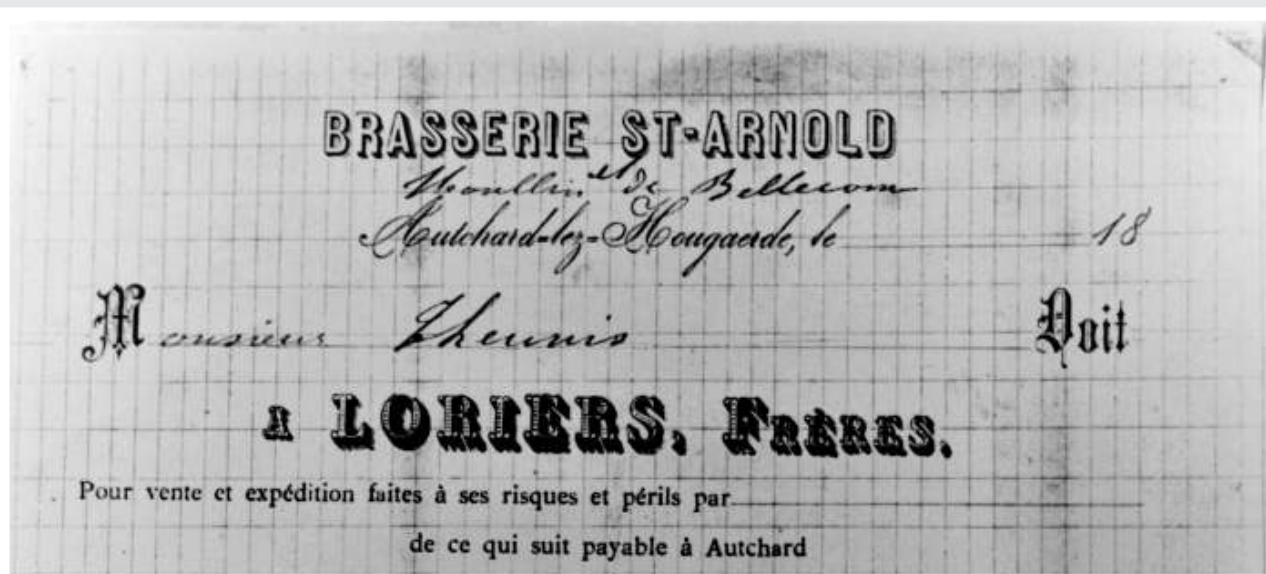 BRASSERIE ST-ARNOLD
Moullin et de Bellecom
Autchard-lez-Hougaerde, le 18
Monsieur Theunis Doit
A LORIERS, FRÈRES.
Pour vente et expédition faites à ses risques et périls par
de ce qui suit payable à Autchard